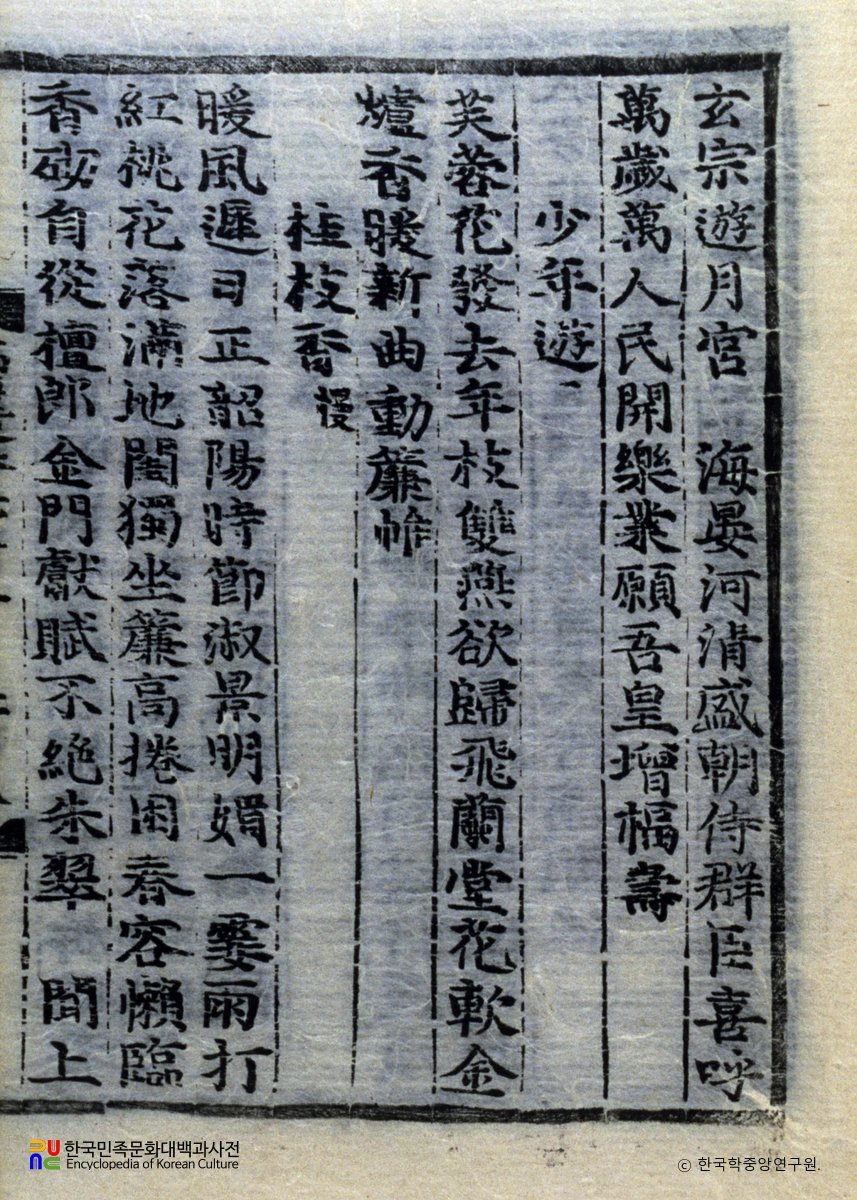 玄宗遊月宮　海晏河清盛朝侍群臣喜呼
萬歲萬人民開樂業願吾皇增福壽
少年遊
芙蓉花發去年枝雙燕欲歸飛蘭堂花軟金
爐香暖新曲動簾帷
桂枝香慢
暖風遲日正韶陽時節淑景明媚一霎雨打
紅桃花落滿地閨獨坐簾高捲困春容懶臨
香砌自從檀郎金門獻賦不絶朱翠　聞上
한국민족문화대백과사전
Encyclopedia of Korean Culture
ⓒ 한국학중앙연구원.